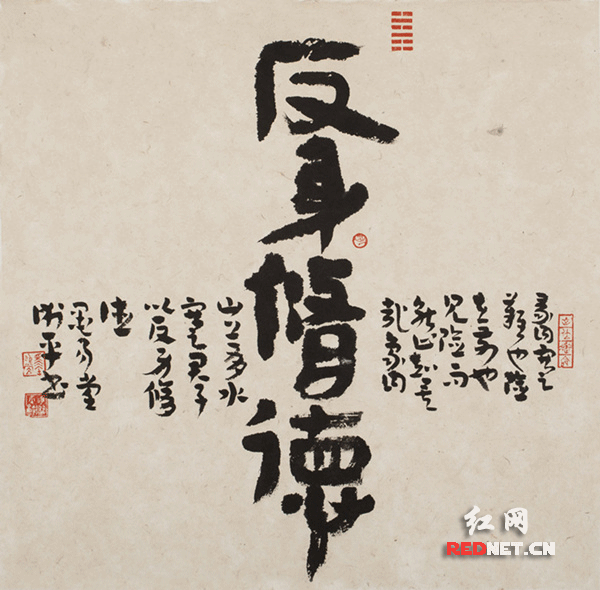 反身脩德
彖曰蹇
難也險
在前也
見險而
能止知矣
哉象曰
山上有水
蹇君子
以反身修
德
红网
REDNET.CN